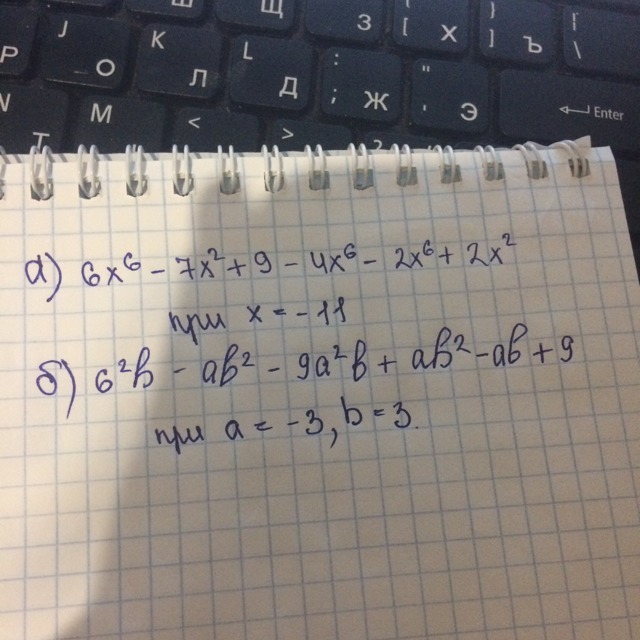 J Щ З { [ Х } ] Ъ | \
Р О K Л L Д : ; Ж " ' Э Enter
N Т M < >
а) 6x⁶ - 7x² + 9 - 4x⁶ - 2x⁶ + 2x²
при x = -11
б) 6²b - ab² - 9a²b + ab² - ab + 9
при a = -3, b = 3.